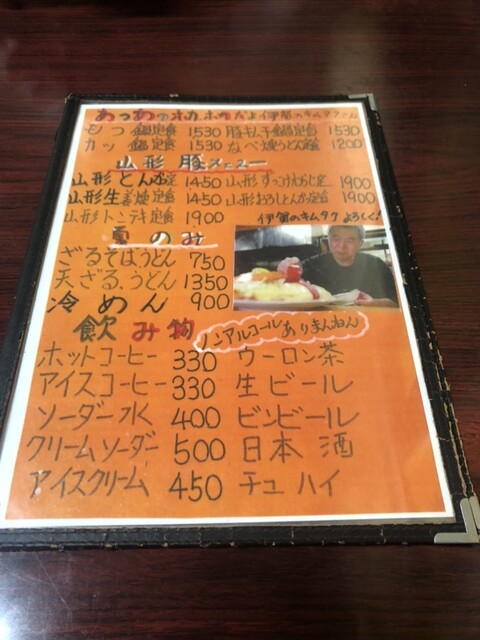 あつあつホカホカだよ伊賀のキムタクさん
もつ鍋定食 1530 豚キムチ鍋定食 1530
カツ鍋定食 1530 なべ焼うどん定食 1200
山形豚メニュー
山形とんかつ定 1450 山形すっけわらじ定 1900
山形生姜焼定食 1450 山形おろしとんかつ定食 1900
山形トンテキ定食 1900 伊賀のキムタク よろしく!
夏のみ
ざるそばうどん 750
天ざる、うどん 1350
冷めん 900
飲み物 ノンアルコールありまんねん
ホットコーヒー 330 ウーロン茶
アイスコーヒー 330 生ビール
ソーダー水 400 ビンビール
クリームソーダー 500 日本酒
アイスクリーム 450 チュハイ